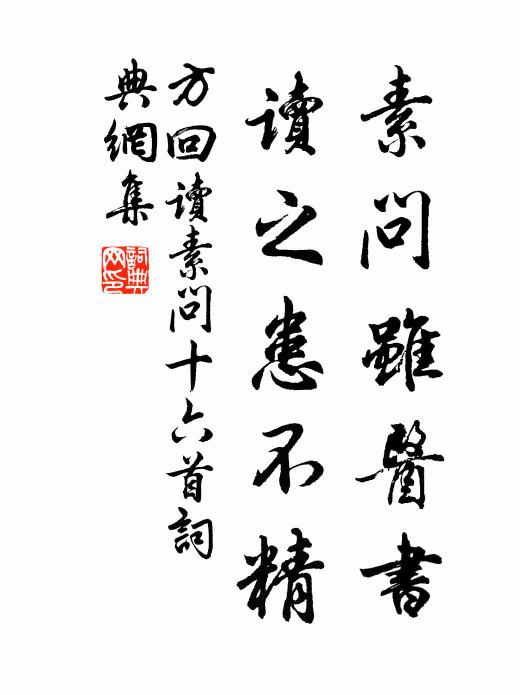 素問雖醫書
讀之患不精
方回讀素問十六首詞
典網集
詞典
网印